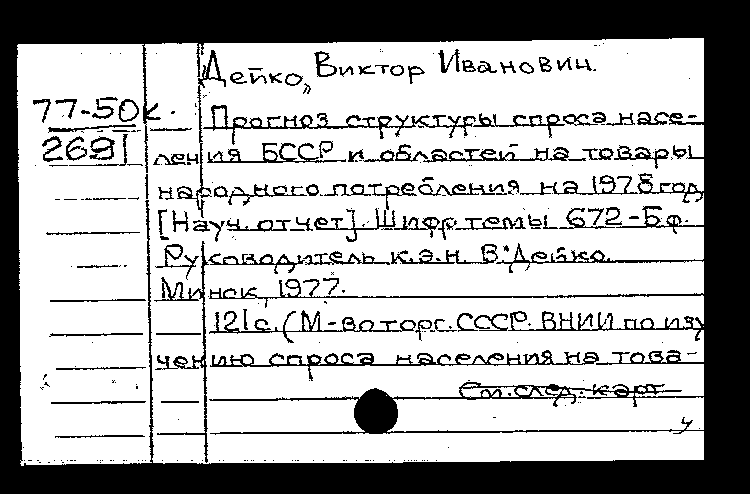 Дейко, Виктор Иванович.
77-50к.
2691
Прогноз структуры спроса насе-
ления БССР и областей на товары
народного потребления на 1978 год
[Науч. отчет]. Шифр темы 672-Бф.
Руководитель к.э.н. В. Дейко.
Минск, 1977.
121с. (М-во торг. СССР. ВНИИ по изу
чению спроса населения на това-
См. след. карт